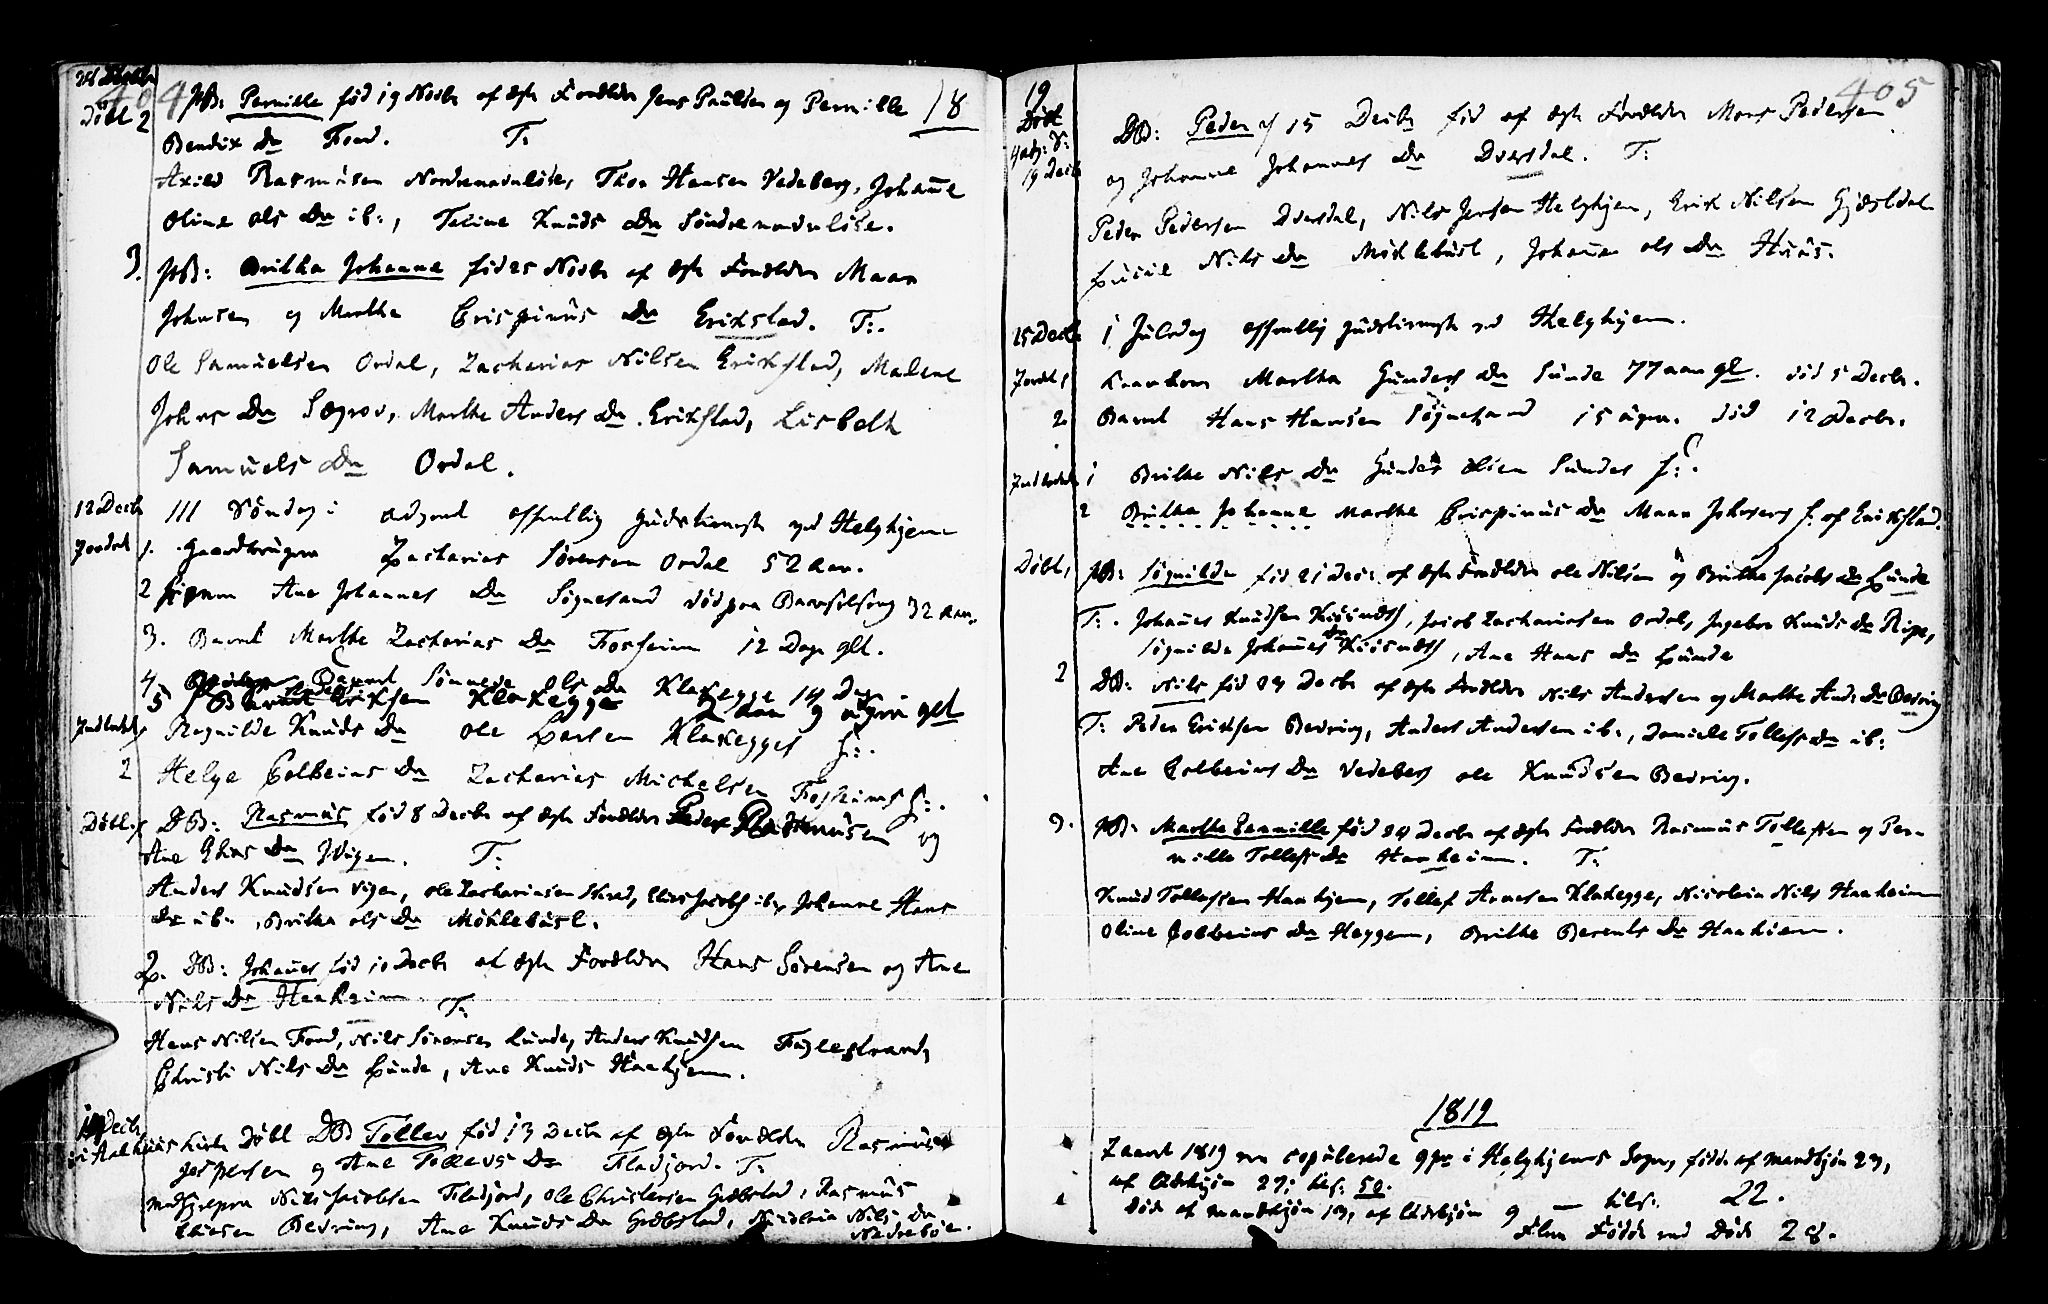 404
Døbt 2 PB: Pernille fød 19 Novbr af Egte Forældre Jens Paulsen og Pernille 18
Bendix Dr Fond. T:
Axild Rasmusen Nordrenavnløse, Thor Hansen Vedeberg, Johañe
Oline Ols Dr ib:, Teline Knuds Dr Søndrenavnløse.
3. PB: Britha Johanne fød 25 Novbr af Egte Forældre Maar
Johnsen og Marthe Crispinus Dr Erikstad. T:.
Ole Samuelsen Ordal, Zacharias Nilsen Erikstad, Malene
Johns Dr Søgrov, Marthe Anders Dr Erikstad, Lisbeth
Samuels Dr Ordal.
12 Decbr III Søndag i Advent offentlig Gudstieneste ved Helghjem
Jordet 1. Gaardbruger Zacharias Sørensen Ordal 52 Aar.
2 Ane Johannes Dr Søgnesand død paa Barselseng 32 Aar.
3. Barnet Marthe Zacharias Dr Fosheim 12 Dage glt.
4 Barnet Ols Dr Klakegge 14 Dage
5 Barnet Anders Eriksen Klakegge 2 Aar 9 uger glt
Indledet 1 Ragnilde Knuds Dr Ole Larsen Klakegges H:.
2 Helge Colbeins Dr Zacharias Michelsen Fosheims H:.
Døbt. 1 DB: Rasmus fød 8 Decbr af Egte Forældre Peder Rasmusen og
Ane Elias Dr Vigen. T:
Anders Knudsen Vigen, Ole Zachariasen Skred, Elias Jacobs ib: Johanne Hans
Dr ib:, Britha Ols Dr Møklebust.
2. DB: Johañes fød 10 Decbr af Egte Forældre Hans Sørensen og Ane
Nils Dr Haaheim. T:
Hans Nilsen Fond, Nils Sørensen Lunde, Anders Knudsen Fuglestrand,
Christi Nils Dr Lunde, Ane Knuds Haahjem.
Decbr
i Aalhuus Kirke Døbt DB Tollev fød 13 Decbr af Egte Forældre Rasmus
Jespersen og Ane Tollevs Dr Fladjord. T:
Nils Jacobsen Fladjord, Ole Christensen Grøbstad, Rasmus
Eliesen Bedring, Ane Knuds Dr Grøbstad, Nicolina Nils Dr
Nedrebøe.
405
19
Døbt
4 adv: S:
19 Decbr
DB: Peder 15 Decbr fød af Egte Forældre Mons Pedersen
og Johanne Johannes Dr Dversdal. T:
Peder Pedersen Dversdal, Nils Jensen Helghjem, Erik Nilsen Gjesdal
Nils Dr Møklebust, Johañe Ols Dr Huus.
25 Decbr i Juledag offentlig Gudstieneste ved Helghjem.
Jordet 1 Marthe Gunders Dr Sunde 77 aar gl. død 5 Decbr.
2. Barnet Hans Hansen Søgnesand 15 uger. død 12 Decbr.
Indledede 1 Brithe Nils Dr Gunder Sunde H:.
2 Britha Johanne Marthe Crispinus Dr Maar Johnsens H: af Erikstad.
Døbt 1 PB: Søgnilde fød 21 Decbr af Egte Forældre Ole Nilsen og Britha Jacobs Dr Lunde
T:. Johanes Knudsen Kiøsnes, Jacob Zachariasen Ordal, Ingebor Knuds Dr Ripe,
Søgnilde Johañes Dr Kiøsnes, Ane Hans Dr Lunde
2 DB: Nils fød 23 Decbr af Egte Forældre Nils Andersen og Marthe Anders Dr Bedring
T: Peder Eriksen Bedring, Anders Andersen ib:, Daniele Tollefs Dr ib:
Ane Colbeins Dr Vedeberg Ole Knudsen Bedring.
3. PB: Marthe Pernille fød 24 Decbr af Egte Forældre Rasmus Tollefsen og Per-
nille Tollefs Dr Haaheim. T:
Knud Tollefsen Haahjem, Tollef Arnesen Klakegge, Nicolina Nils Haaheim
Oline Colbeins Dr Heggem, Brithe Berents Dr Haahiem.
1819
I Aaret 1819 ere Copulerede 9 Par i Helghjems Sogn, fødde af Mandkjøn 23,
af Qvindekjøn 27; tils: 50.
Døde af Mandkjøn 13, af Qvindekjøn 9 — tils: 22.
Flere Fødde end Døde 28.